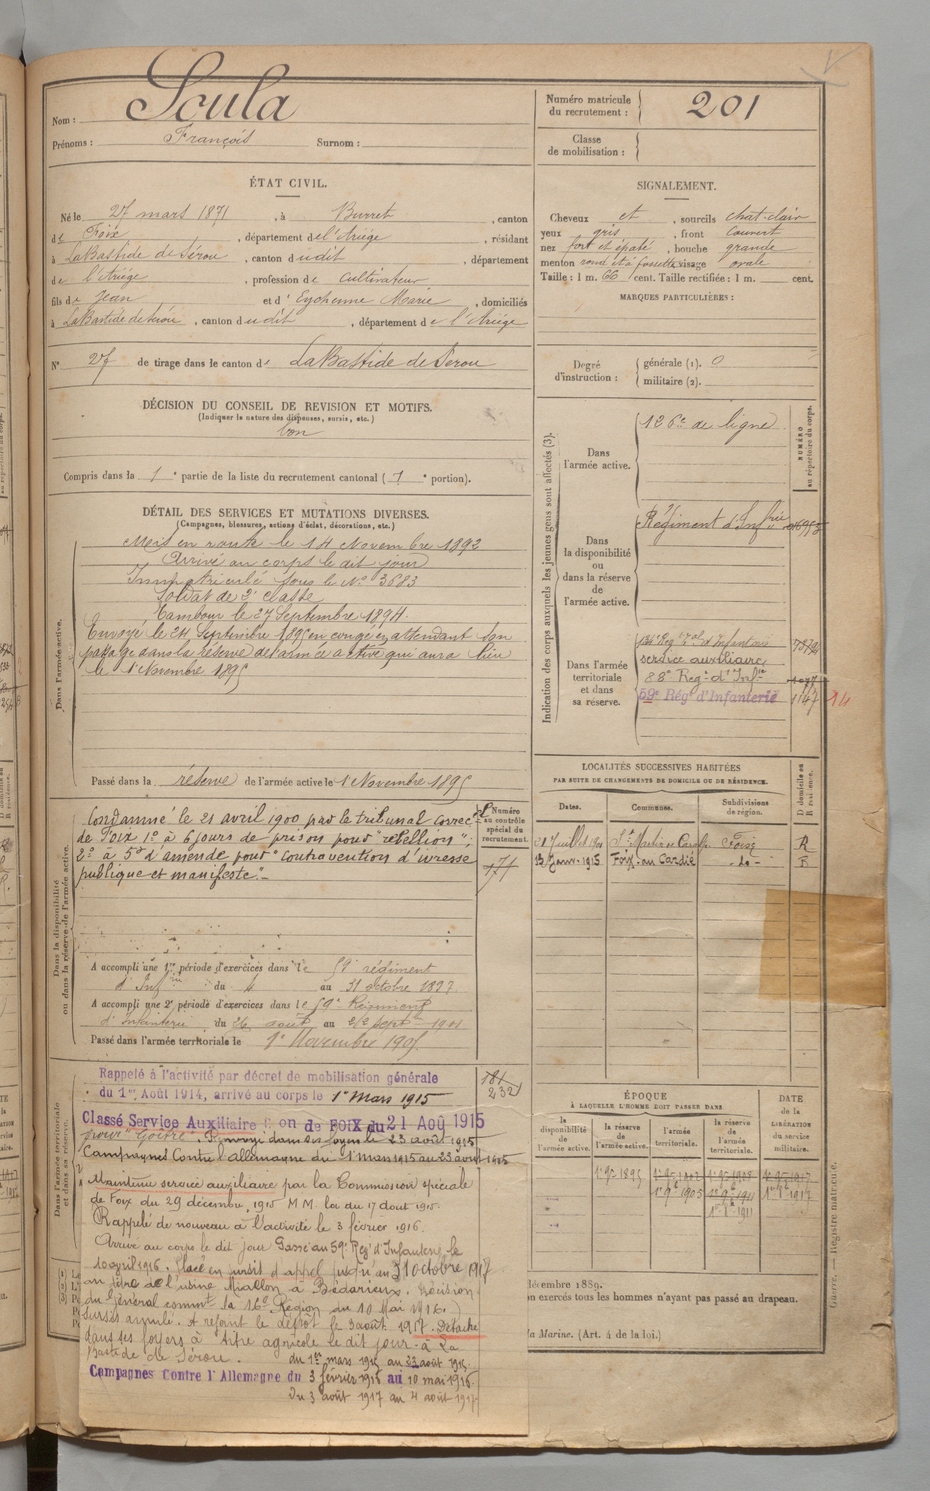 Nom : Soula
Prénoms : François Surnom :
Numéro matricule du recrutement : 201
Classe de mobilisation :
ÉTAT CIVIL.
Né le 27 mars 1871, à Burret, canton
de Foix, département de l'Ariége, résidant
à LaBastide de Sérou, canton dudit, département
de l'Ariége, profession de cultivateur
fils de Jean et d'Eychenne Marie, domiciliés
à LaBastide de Sérou, canton dudit, département de l'Ariége
N° 27 de tirage dans le canton de LaBastide de Serou
DÉCISION DU CONSEIL DE REVISION ET MOTIFS.
(Indiquer la nature des dispenses, sursis, etc.)
bon
Compris dans la 1e partie de la liste du recrutement cantonal (1e portion).
SIGNALEMENT.
Cheveux et, sourcils chat-clair
yeux gris, front couvert
nez fort et épaté, bouche grande
menton rond et à fossette visage ovale
Taille : 1 m. 66 cent. Taille rectifiée : 1 m. cent.
MARQUES PARTICULIÈRES :
Degré d'instruction : générale (1). 0
militaire (2).
DÉTAIL DES SERVICES ET MUTATIONS DIVERSES.
(Campagnes, blessures, actions d'éclat, décorations, etc.)
Dans l'armée active.
Mis en route le 14 Novembre 1892
Arrivé au corps le dit jour
Immatriculé sous le N° 3683
Soldat de 2e classe
Tambour le 27 Septembre 1894
Envoyé le 24 Septembre 1895 en congé en attendant son
passage dans la réserve de l'armée active qui aura lieu
le 1 Novembre 1895
Passé dans la réserve de l'armée active le 1 Novembre 1895
Indication des corps auxquels les jeunes gens sont affectés (3).
NUMÉRO au répertoire du corps.
Dans l'armée active.
126e de ligne
Dans la disponibilité ou dans la réserve de l'armée active.
Régiment d'Infrie
Dans l'armée territoriale et dans sa réserve.
service auxiliaire
88e Regt d'Infie
59e Régt d'Infanterie
Dans la disponibilité ou dans la réserve de l'armée active.
Condamné le 21 avril 1900 par le tribunal correcl
de Foix 1° à 6 jours de prison pour "rébellion";
2° à 5f d'amende pour "contravention d'ivresse
publique et manifeste".
Numéro au contrôle spécial du recrutement.
A accompli une 1re période d'exercices dans le 59e régiment
d'Infrie du 4 au 31 octobre 1897
A accompli une 2e période d'exercices dans le 59e Régiment
d'Infanterie du 26 août au 22 septbre 1901
Passé dans l'armée territoriale le 1er Novembre 1905
LOCALITÉS SUCCESSIVES HABITÉES
PAR SUITE DE CHANGEMENTS DE DOMICILE OU DE RÉSIDENCE.
Dates. Communes. Subdivisions de région. D domicile ou R résidence.
Foix R
13 Janv. 1915 Foix - au Cardié - do - R
Dans l'armée territoriale et dans sa réserve.
Rappelé à l'activité par décret de mobilisation générale
du 1er Août 1914, arrivé au corps le 1er Mars 1915
232
Classé Service Auxiliaire Con de FOIX du 21 Aoû 1915
pour "Goitre" Renvoyé dans ses foyers le 23 août 1915
Campagnes Contre l'Allemagne du 1 mars 1915 au 23 août 1915
Maintenu service auxiliaire par la Commission spéciale
de Foix du 29 décembre 1915 M M. loi du 17 août 1915.
Rappelé de nouveau à l'activité le 3 février 1916.
Arrivé au corps le dit jour Passé au 59e Regt d'Infanterie le
10 avril 1916. Placé en sursis d'appel jusqu'au 31 octobre 1917
au titre de l'usine Miallon à Bédarieux. (Décision
du Général commt la 16e Région du 10 Mai 1916.)
Sursis annulé. A rejoint le dépôt le 3 août 1917. Détaché
dans ses foyers à titre agricole le dit jour à La
Bastide de Sérou.
du 1er mars 1915 au 23 août 1915.
Campagnes Contre l'Allemagne du 3 février 1916 au 10 mai 1916
du 3 août 1917 au 4 août 1917
ÉPOQUE
À LAQUELLE L'HOMME DOIT PASSER DANS
la disponibilité de l'armée active. la réserve de l'armée active. l'armée territoriale. la réserve de l'armée territoriale.
DATE de la LIBÉRATION du service militaire.
décembre 1889.
on exercés tous les hommes n'ayant pas passé au drapeau.
la Marine. (Art. 4 de la loi.)
Registre matricule.